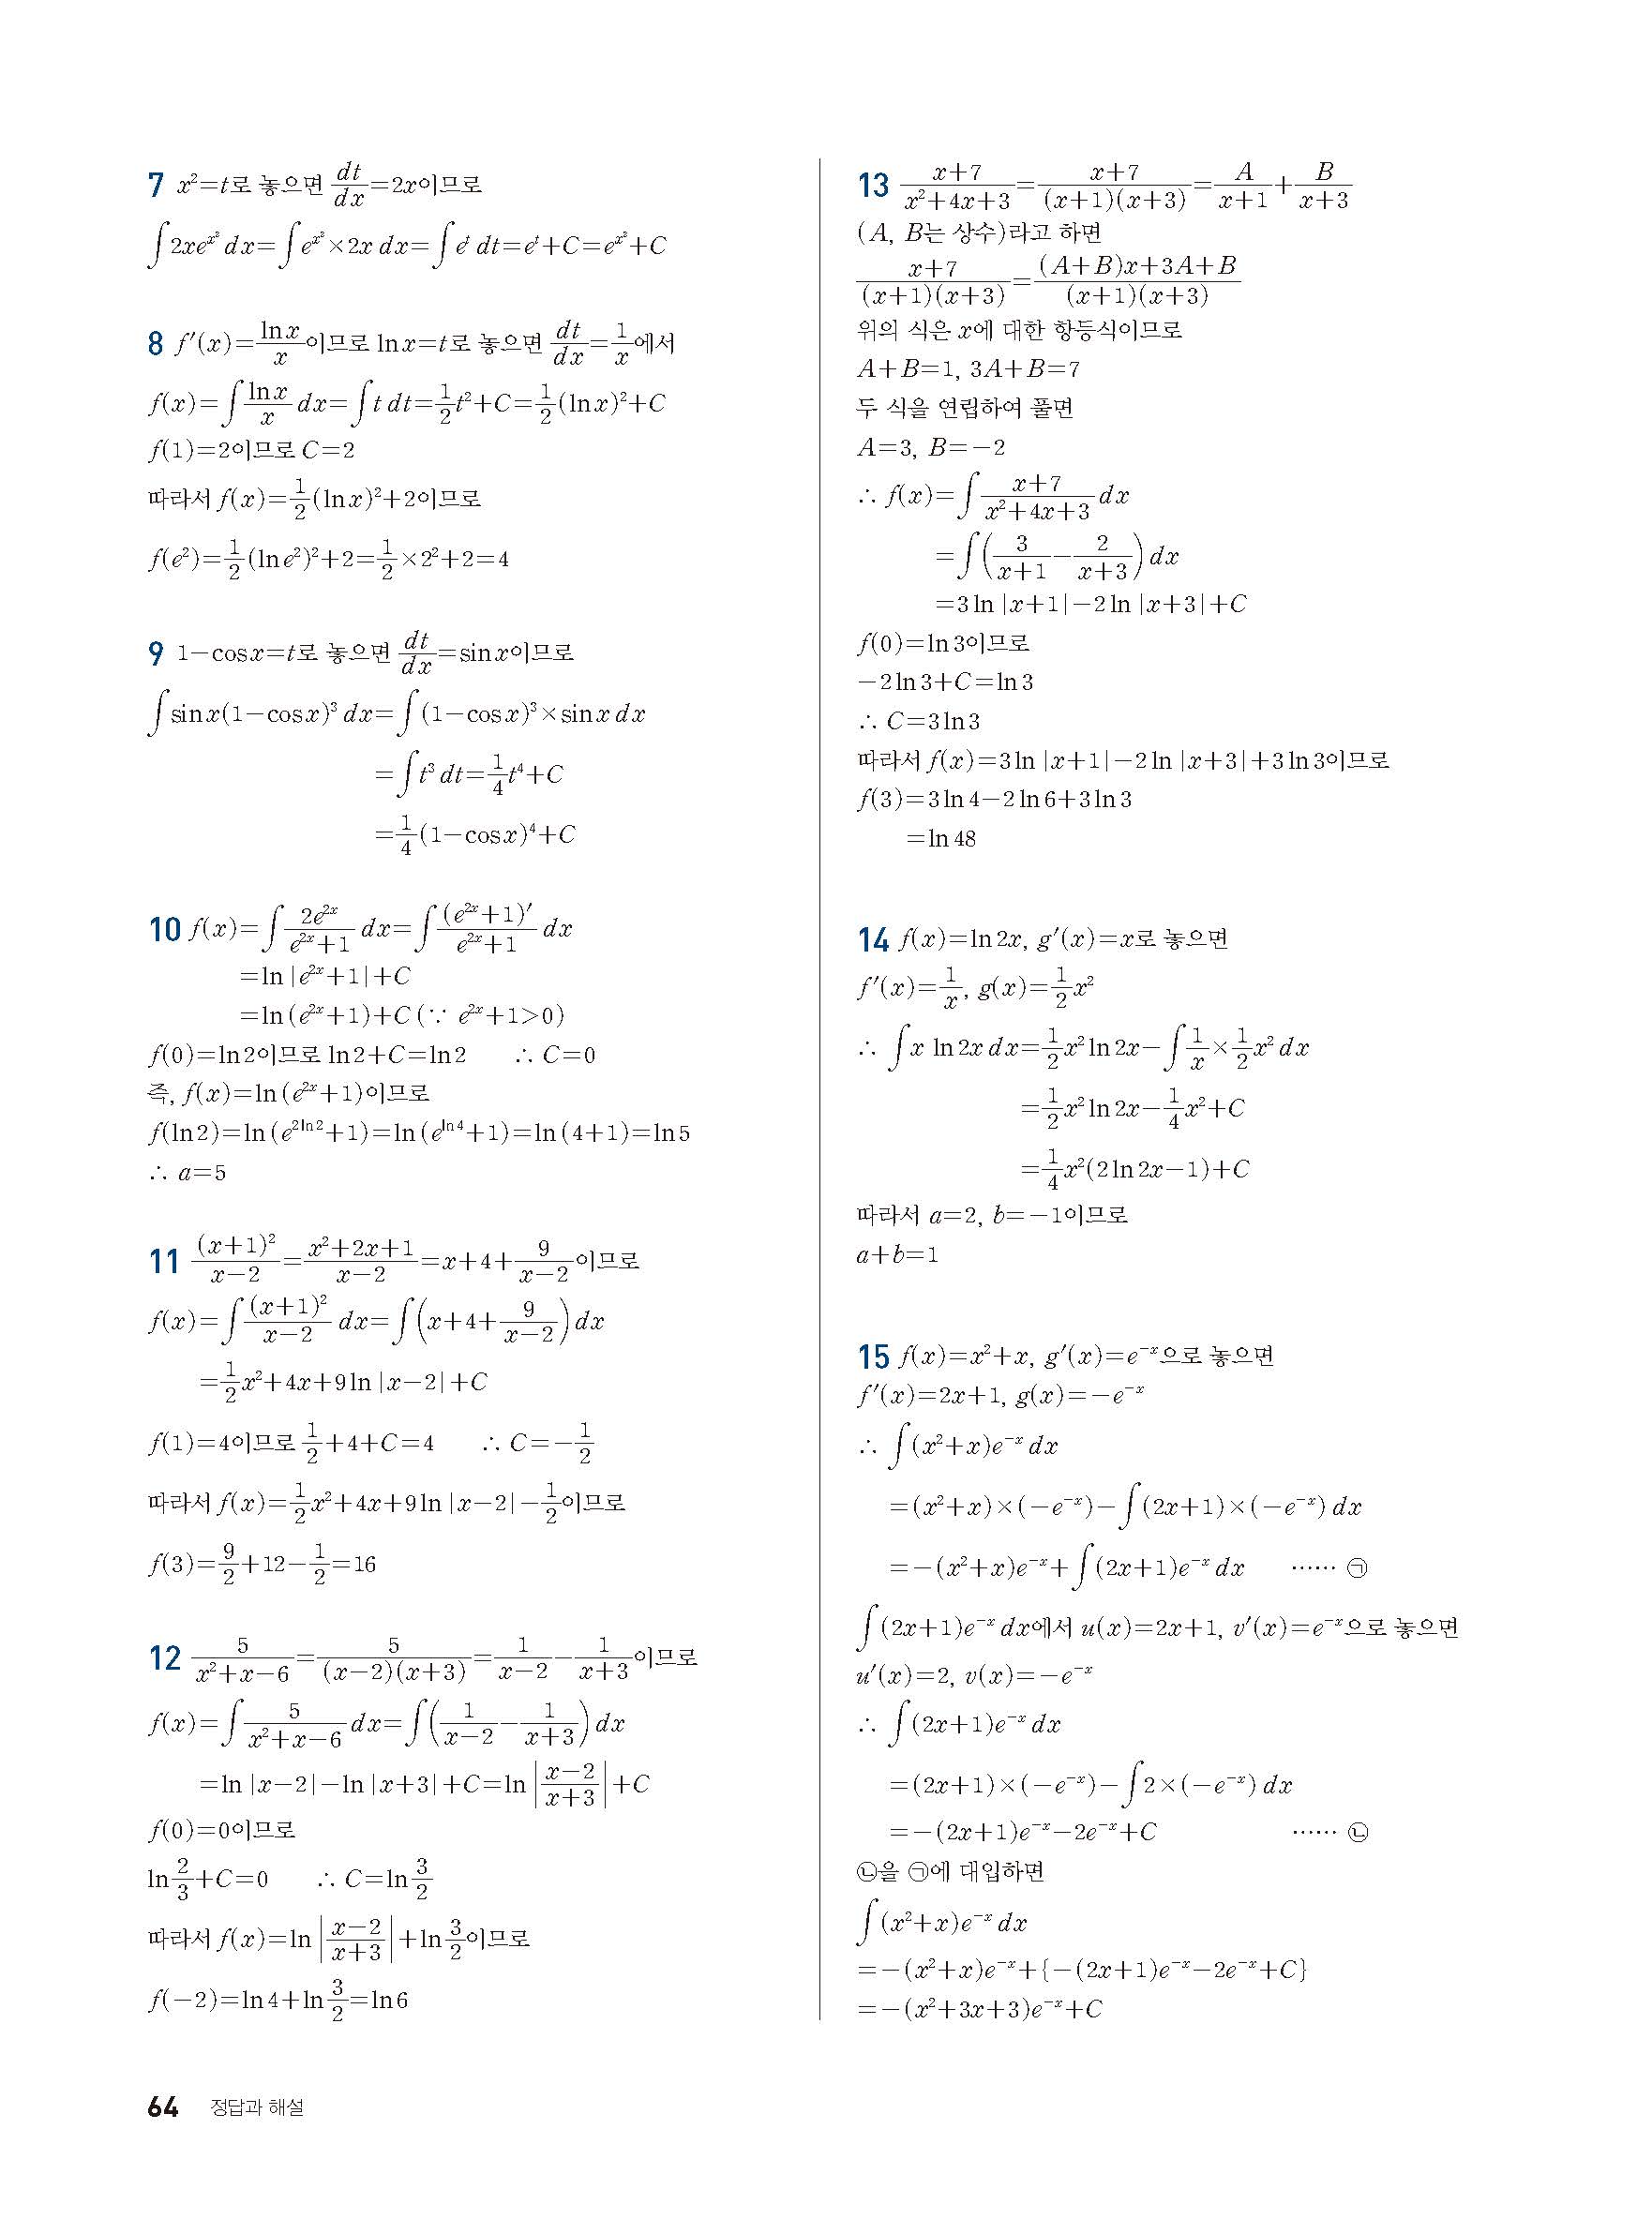 7 x²=t로 놓으면 dt/dx=2x이므로
∫2xe^{x²}dx=∫e^{x²}×2x dx=∫e^t dt=e^t+C=e^{x²}+C
8 f′(x)=lnx/x이므로 lnx=t로 놓으면 dt/dx=1/x에서
f(x)=∫lnx/x dx=∫t dt=1/2t²+C=1/2(lnx)²+C
f(1)=2이므로 C=2
따라서 f(x)=1/2(lnx)²+2이므로
f(e²)=1/2(lne²)²+2=1/2×2²+2=4
9 1-cosx=t로 놓으면 dt/dx=sinx이므로
∫sinx(1-cosx)³dx=∫(1-cosx)³×sinx dx
=∫t³dt=1/4t⁴+C
=1/4(1-cosx)⁴+C
10 f(x)=∫2e^{2x}/(e^{2x}+1) dx=∫(e^{2x}+1)′/(e^{2x}+1) dx
=ln|e^{2x}+1|+C
=ln(e^{2x}+1)+C(∵ e^{2x}+1>0)
f(0)=ln2이므로 ln2+C=ln2 ∴ C=0
즉, f(x)=ln(e^{2x}+1)이므로
f(ln2)=ln(e^{2ln2}+1)=ln(e^{ln4}+1)=ln(4+1)=ln5
∴ a=5
11 (x+1)²/(x-2)=(x²+2x+1)/(x-2)=x+4+9/(x-2)이므로
f(x)=∫(x+1)²/(x-2) dx=∫(x+4+9/(x-2))dx
=1/2x²+4x+9ln|x-2|+C
f(1)=4이므로 1/2+4+C=4 ∴ C=-1/2
따라서 f(x)=1/2x²+4x+9ln|x-2|-1/2이므로
f(3)=9/2+12-1/2=16
12 5/(x²+x-6)=5/((x-2)(x+3))=1/(x-2)-1/(x+3)이므로
f(x)=∫5/(x²+x-6)dx=∫(1/(x-2)-1/(x+3))dx
=ln|x-2|-ln|x+3|+C=ln|(x-2)/(x+3)|+C
f(0)=0이므로
ln2/3+C=0 ∴ C=ln3/2
따라서 f(x)=ln|(x-2)/(x+3)|+ln3/2이므로
f(-2)=ln4+ln3/2=ln6
13 (x+7)/(x²+4x+3)=(x+7)/((x+1)(x+3))=A/(x+1)+B/(x+3)
(A, B는 상수)라고 하면
(x+7)/((x+1)(x+3))=((A+B)x+3A+B)/((x+1)(x+3))
위의 식은 x에 대한 항등식이므로
A+B=1, 3A+B=7
두 식을 연립하여 풀면
A=3, B=-2
∴ f(x)=∫(x+7)/(x²+4x+3)dx
=∫(3/(x+1)-2/(x+3))dx
=3ln|x+1|-2ln|x+3|+C
f(0)=ln3이므로
-2ln3+C=ln3
∴ C=3ln3
따라서 f(x)=3ln|x+1|-2ln|x+3|+3ln3이므로
f(3)=3ln4-2ln6+3ln3
=ln48
14 f(x)=ln2x, g′(x)=x로 놓으면
f′(x)=1/x, g(x)=1/2x²
∴ ∫x ln2x dx=1/2x²ln2x-∫1/x×1/2x²dx
=1/2x²ln2x-1/4x²+C
=1/4x²(2ln2x-1)+C
따라서 a=2, b=-1이므로
a+b=1
15 f(x)=x²+x, g′(x)=e^{-x}으로 놓으면
f′(x)=2x+1, g(x)=-e^{-x}
∴ ∫(x²+x)e^{-x}dx
=(x²+x)×(-e^{-x})-∫(2x+1)×(-e^{-x})dx
=-(x²+x)e^{-x}+∫(2x+1)e^{-x}dx …… ㉠
∫(2x+1)e^{-x}dx에서 u(x)=2x+1, v′(x)=e^{-x}으로 놓으면
u′(x)=2, v(x)=-e^{-x}
∴ ∫(2x+1)e^{-x}dx
=(2x+1)×(-e^{-x})-∫2×(-e^{-x})dx
=-(2x+1)e^{-x}-2e^{-x}+C …… ㉡
㉡을 ㉠에 대입하면
∫(x²+x)e^{-x}dx
=-(x²+x)e^{-x}+{-(2x+1)e^{-x}-2e^{-x}+C}
=-(x²+3x+3)e^{-x}+C
64 정답과 해설